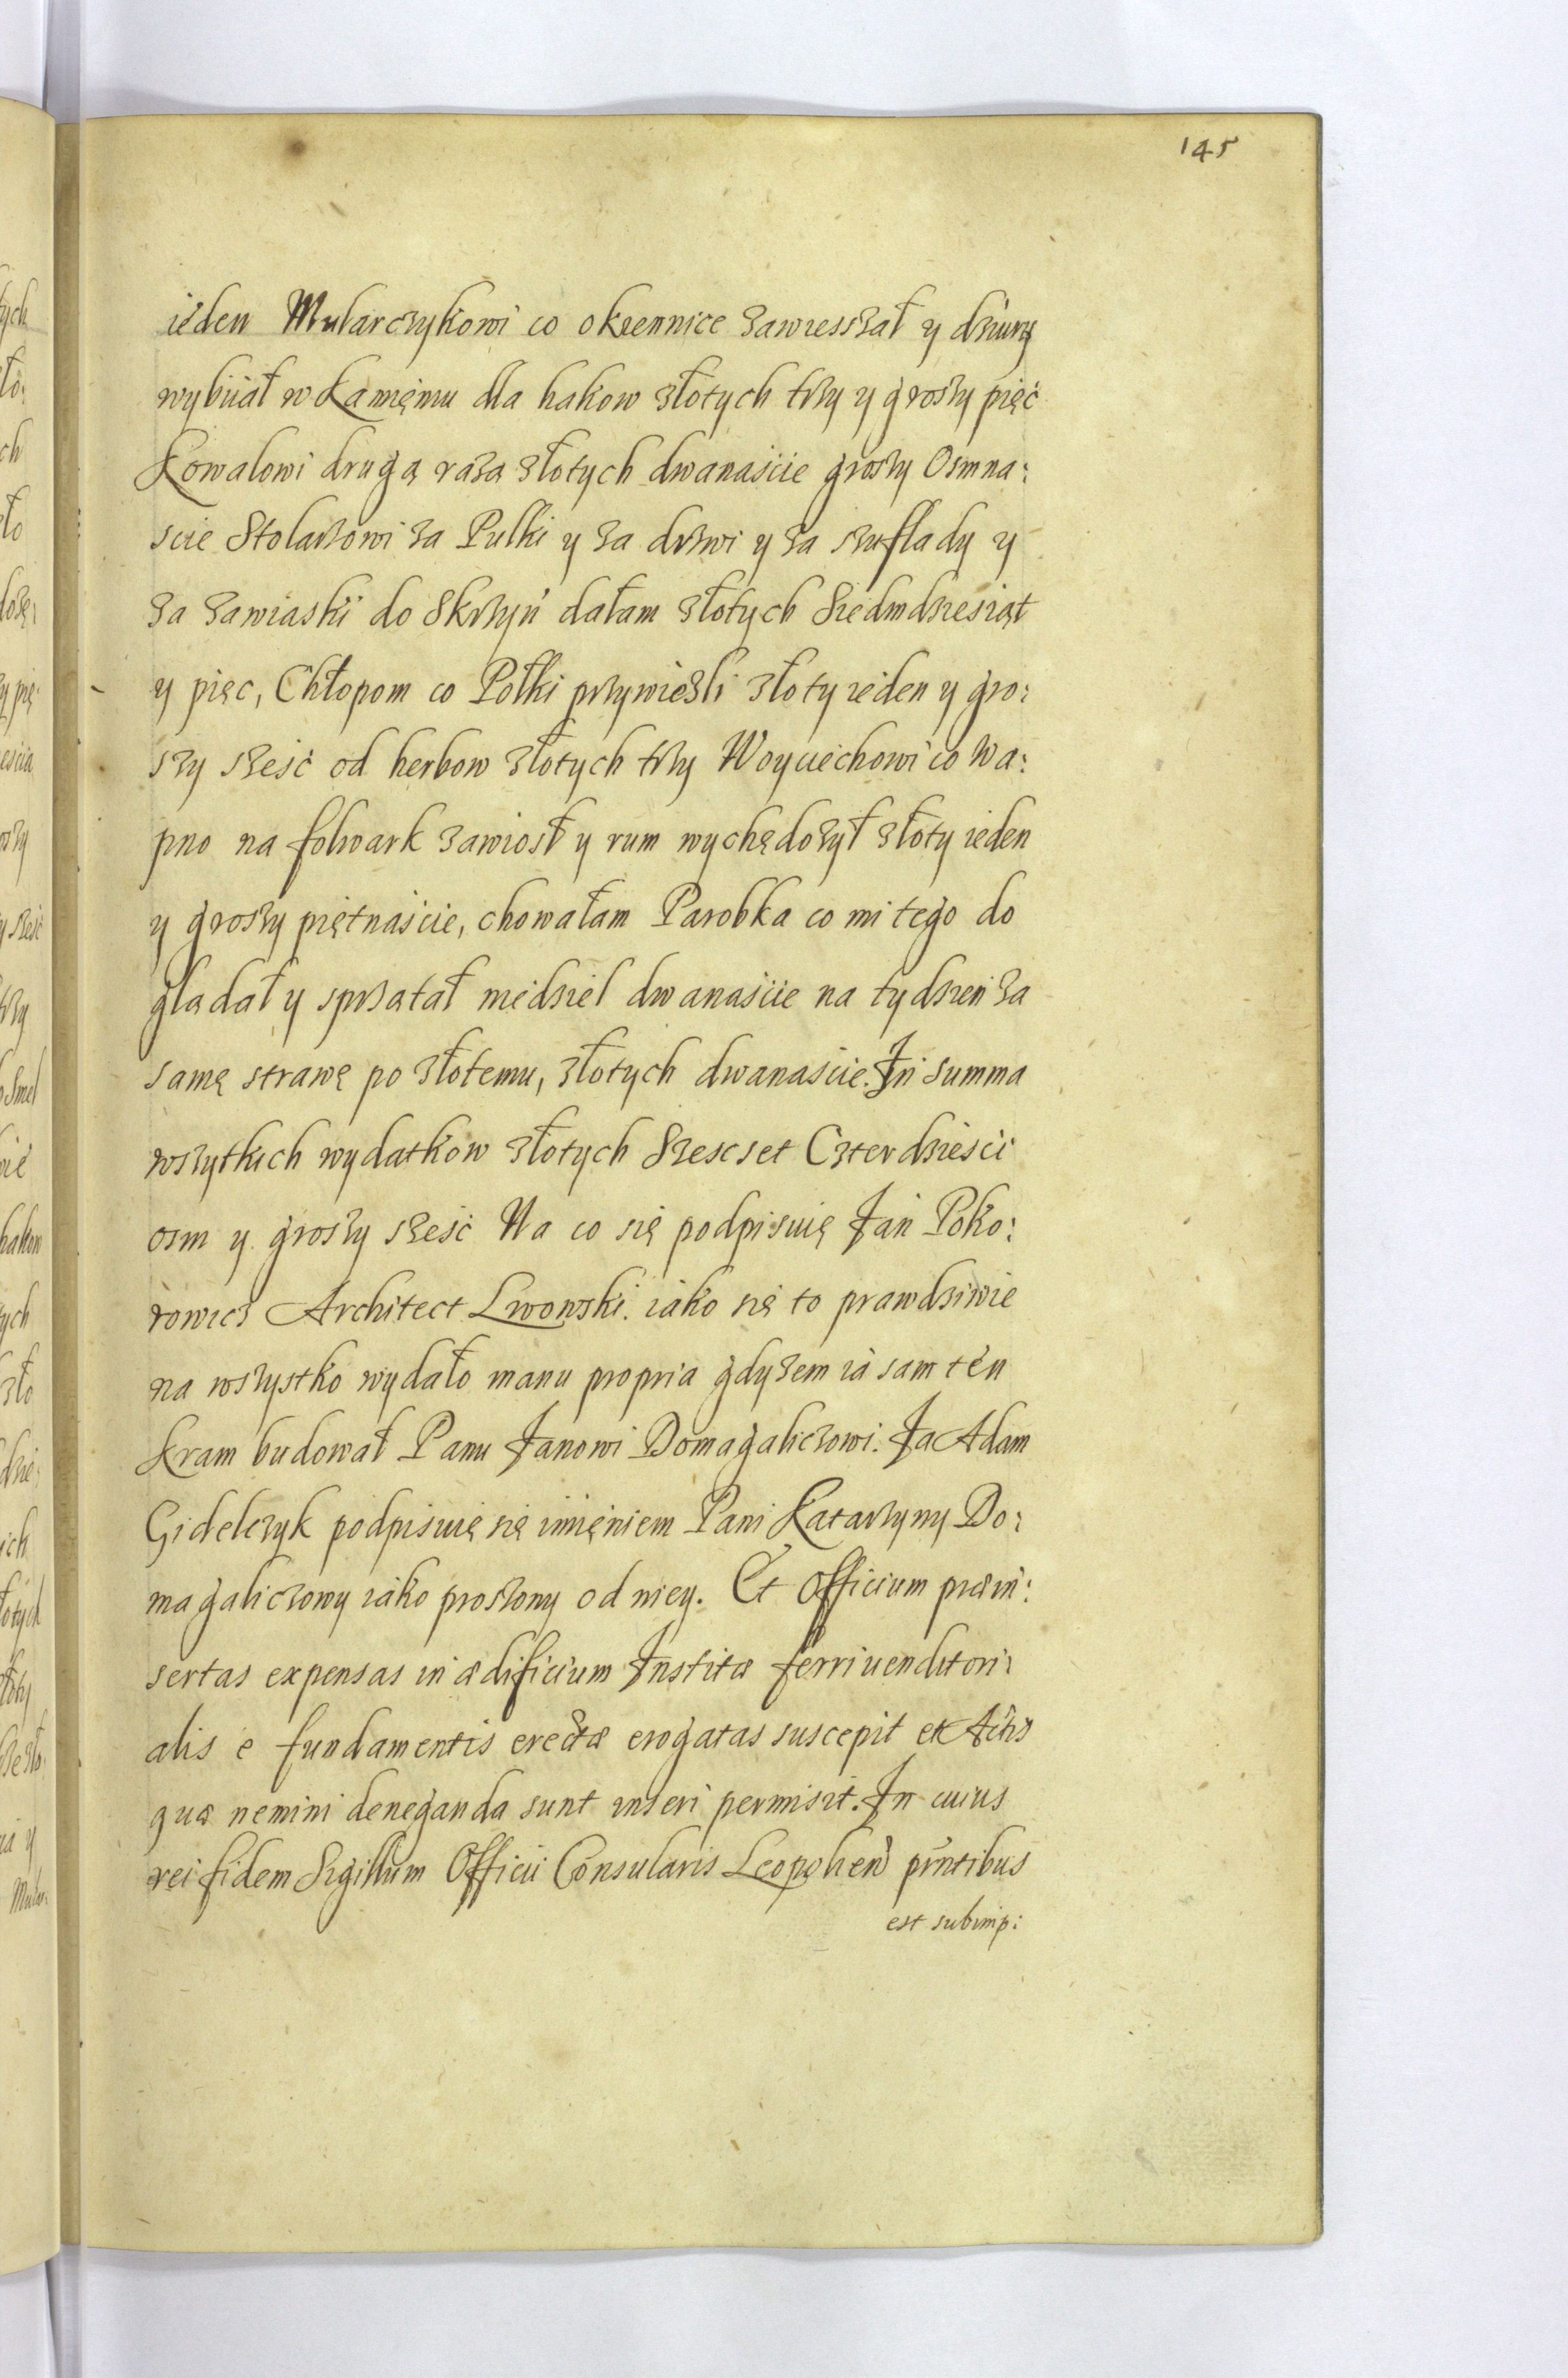 145
ieden Mularczykowi co okiennice zawieszał y dziury
wybiiał w Kamięniu dla hakow złotych trzy y groszy pięć
Kowalowi drugą razą złotych dwanaście groszy Osmna:
scie Stolarzowi za Pulki y za drzwi y za szuflady y
za zawiaski do Skrzyń dałam złotych Siedmdziesiąt
y pięc, Chłopom co Połki przywiezli złoty ieden y gro:
szy sześć od herbow złotych trzy Woyciechowi co Wa:
pno na folwark zawiosł y rum wychędożył złoty ieden
y groszy piętnaście, chowałam Parobka co mi tego do
glądał y sprzątał niedziel dwanaście na tydzień za
samę strawę po złotemu, złotych dwanaście. In summa
wszytkich wydatkow złotych Szescset Czterdzieści
osm y groszy sześć Na co się podpisuię Jan Poko:
rowicz Architect Lwowski. iáko się to prawdziwie
na wszystko wydało manu propria gdyżem iá sam tén
Kram budował Panu Janowi Domagaliczowi. Ja Adam
Gidelczyk podpisuię się imięniem Pani Katarzyny Do:
magaliczowy iáko proszony od niey. Et Officium præin:
sertas expensas in ædificium Institæ ferriuenditori:
alis e fundamentis erectæ erogatas suscepit et Actis
quæ nemini deneganda sunt inseri permisit. In cuius
rei fidem Sigillum Officii Consularis Leopolien pnntibus
est subimp: